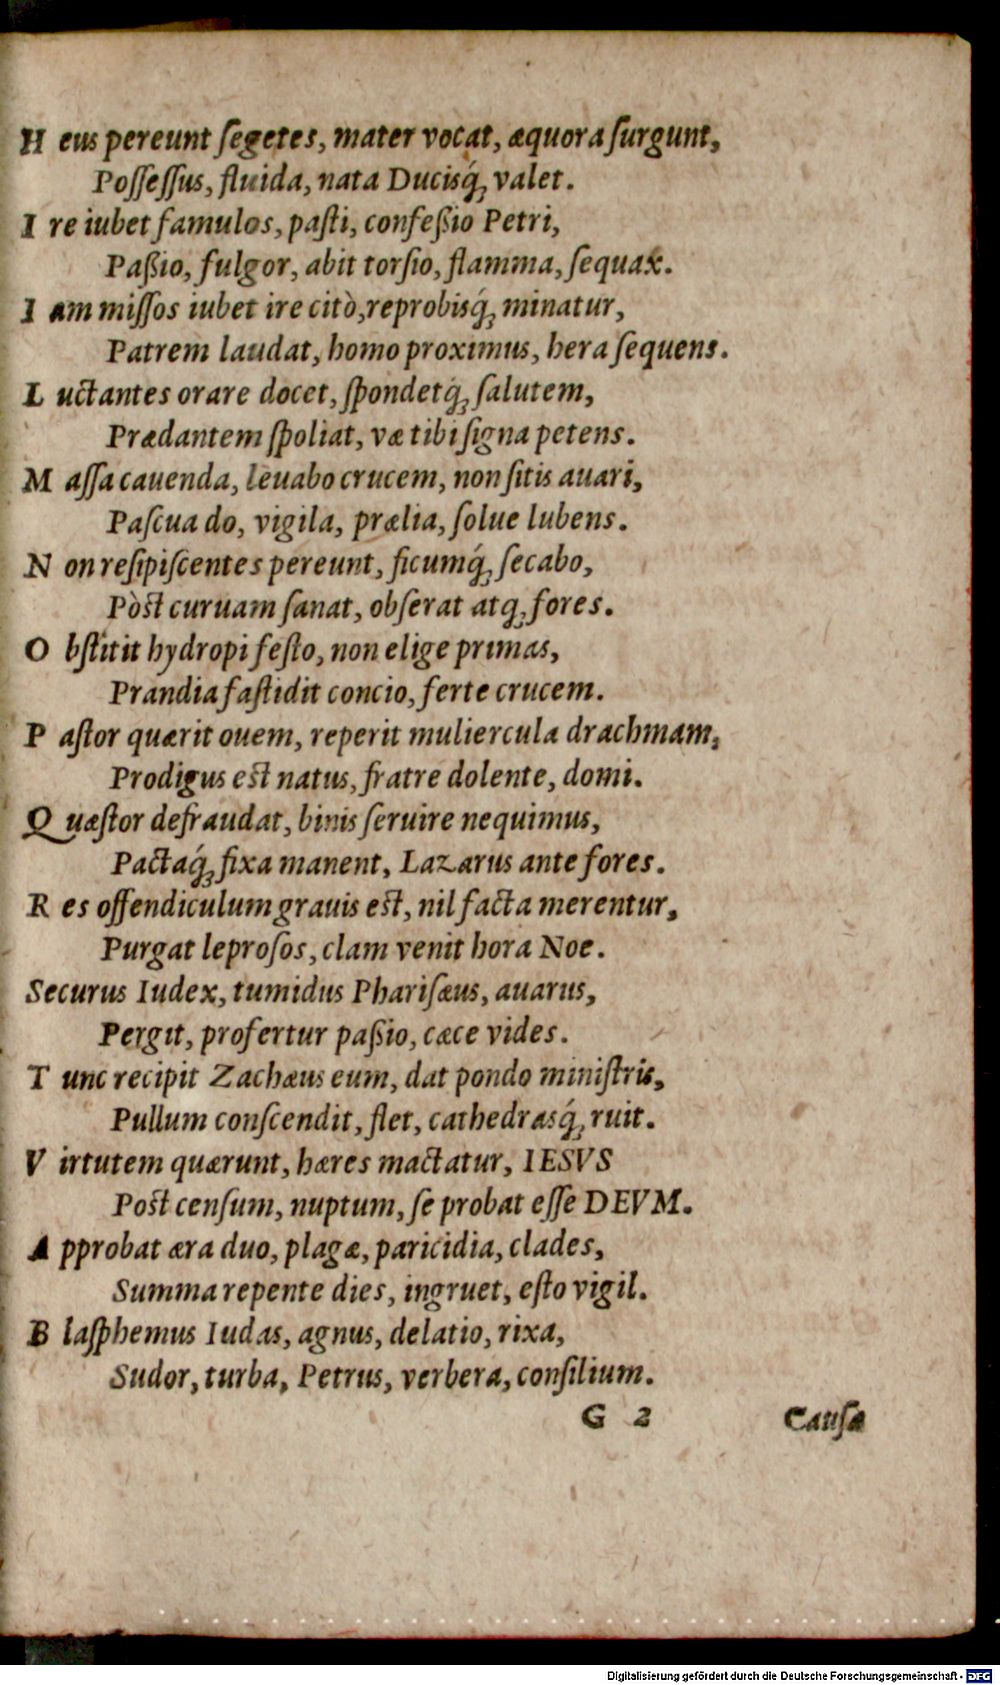 H eus pereunt ſegetes, mater vocat, æquora ſurgunt,
Poſſeſſus, fluida, nata Ducisq́ꝫ valet.
I re iubet famulos, paſti, confeßio Petri,
Paßio, fulgor, abit torſio, flamma, ſequax.
I am miſſos iubet ire citò, reprobisq́ꝫ minatur,
Patrem laudat, homo proximus, hera ſequens.
L uctantes orare docet, ſpondetq́ꝫ ſalutem,
Prædantem ſpoliat, væ tibi ſigna petens.
M aſſa cauenda, leuabo crucem, non ſitis auari,
Paſcua do, vigila, prælia, ſolue lubens.
N on reſipiſcentes pereunt, ficumq́ꝫ ſecabo,
Pòst curuam ſanat, obſerat atqꝫ fores.
O bſtitit hydropi feſto, non elige primas,
Prandia faſtidit concio, ferte crucem.
P aſtor quærit ouem, reperit muliercula drachmam,
Prodigus est natus, fratre dolente, domi.
Q uæſtor defraudat, binis ſeruire nequimus,
Pactaq́ꝫ fixa manent, Lazarus ante fores.
R es offendiculum grauis est, nil facta merentur,
Purgat leproſos, clam venit hora Noe.
Securus Iudex, tumidus Phariſæus, auarus,
Pergit, profertur paßio, cæce vides.
T unc recipit Zachæus eum, dat pondo miniſtris,
Pullum conſcendit, flet, cathedrasq́ꝫ ruit.
V irtutem quærunt, hæres mactatur, IESVS
Post cenſum, nuptum, ſe probat eſſe DEVM.
A pprobat æra duo, plagæ, paricidia, clades,
Summa repente dies, ingruet, eſto vigil.
B laſphemus Iudas, agnus, delatio, rixa,
Sudor, turba, Petrus, verbera, conſilium.
G 2 Cauſa
Digitalisierung gefördert durch die Deutsche Forschungsgemeinschaft - DFG